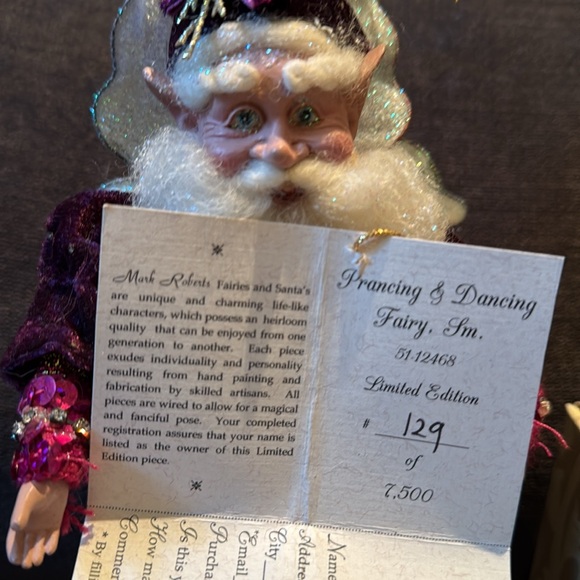 Mark Roberts Fairies and Santa's
are unique and charming life-like
characters, which possess an heirloom
quality that can be enjoyed from one
generation to another. Each piece
exudes individuality and personality
resulting from hand painting and
fabrication by skilled artisans. All
pieces are wired to allow for a magical
and fanciful pose. Your completed
registration assures that your name is
listed as the owner of this Limited
Edition piece.
Prancing & Dancing
Fairy, Sm.
51-12468
Limited Edition
# 129
of
7,500
Name
Addre
City
Email
Purcha
Is this y
How ma
Commen
* By filli